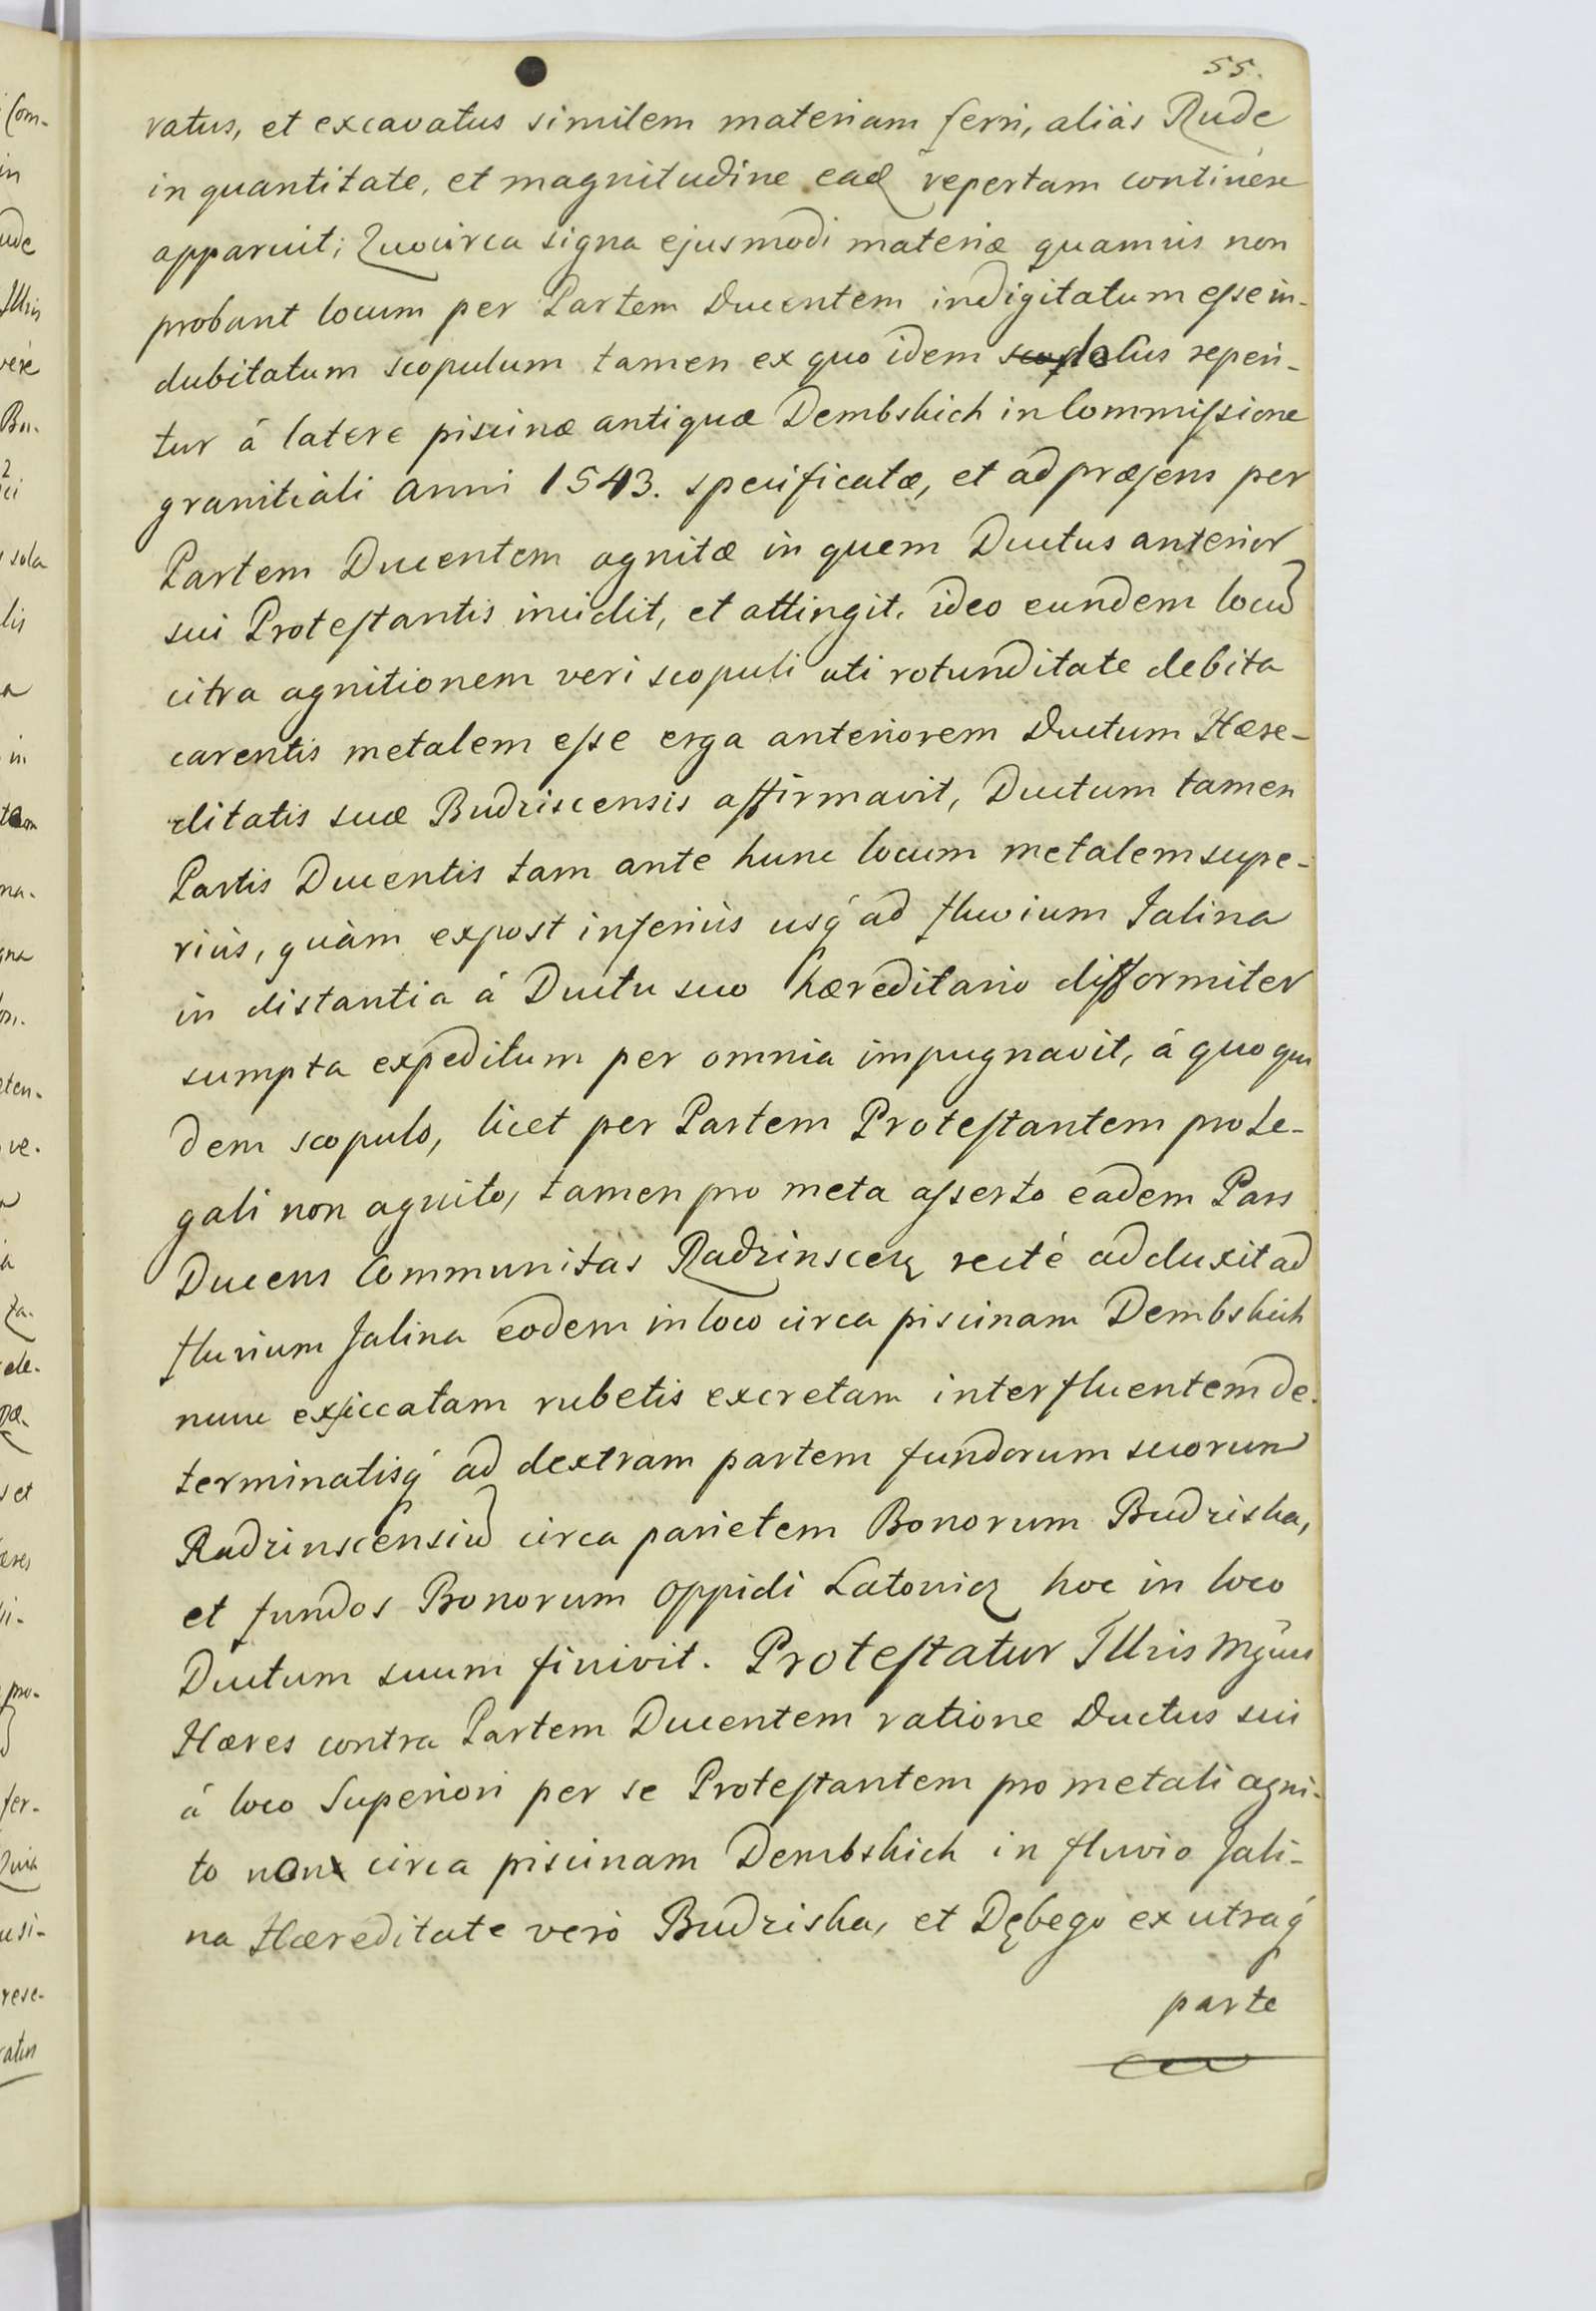 55.
ratus, et excavatus similem materiam ferri, aliàs Rude
in quantitate, et magnitudine eadq̃ repertam continére
apparuit; Quocirca signa ejusmodi materiæ quamvis non
probant locum per Partem Ducentem indigitatum eſse in-
dubitatum scopulum tamen ex quo idem locus reperi-
tur á latere piscinæ antiquæ Dembskich in Commiſsione
granitiali Anni 1543. specificatæ, et ad præſens per
Partem Ducentem agnitæ in quem Ductus anterior
sui Proteſtantis incidit, et attingit. ideo eundem locū
citra agnitionem veri scopuli uti rotunditate debita
carentis metalem eſse erga anteriorem Ductum Hære-
ditatis suæ Budziscensis affirmavit, Ductum tamen
Partis Ducentis tam ante hunc locum metalem supe-
riùs, quàm expost inferiùs usq́ ad fluvium Jalina
in distantia á Ductu suo hæreditario difformiter
sumpta expeditum per omnia impugnavit, á quo qui
dem scopulo, licet per Partem Proteſtantem pro Le-
gali non agnito, tamen pro meta aſserto eadem Pars
Ducens Communitas Radzinscen recté adduxit ad
fluvium Jalina eodem in loco circa piscinam Dembskich
nunc exſiccatam rubetis excretam interfluentem de-
terminatisq́ ad dextram partem fundorum suorum
Radzinscensiū circa parietem Bonorum Budziska,
et fundos Bonorum Oppidi Latowicz hoc in loco
Ductum suum finivit. Proteſtatur Illris Mgcus
Hæres contra Partem Ducentem ratione Ductus sui
á loco Superiori per se Proteſtantem pro metali agni-
to non circa piscinam Dembskich in fluvio Jali-
na Hæreditate verò Budziska, et Dębego ex utraq́
parte